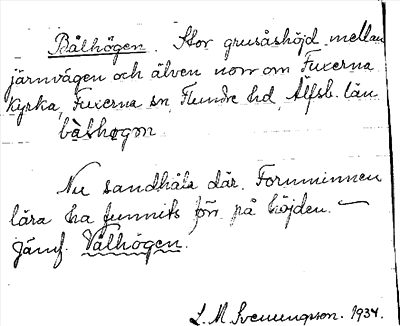 Bålhögen. Stor grusåshöjd mellan
järnvägen och älven norr om Fuxerna
Kyrka, Fuxerna sn, Flundre hd, Älfsb. län
bå̀shøgɔn
Nu sandhåla där. Fornminnen
lära ha funnits förr på höjden. —
Jämf. Vålhögen.
L. M. Svenungsson. 1934.